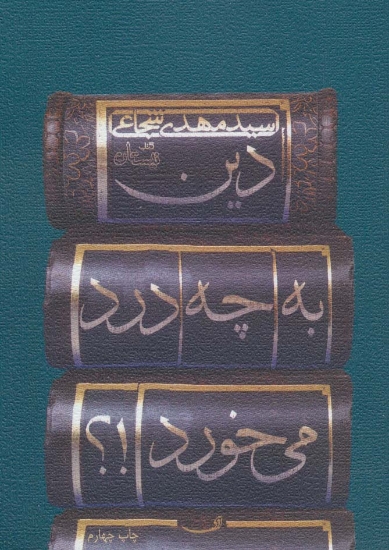 سید مهدی شجاعی
دین
به چه درد
می خورد !؟
چاپ چهارم